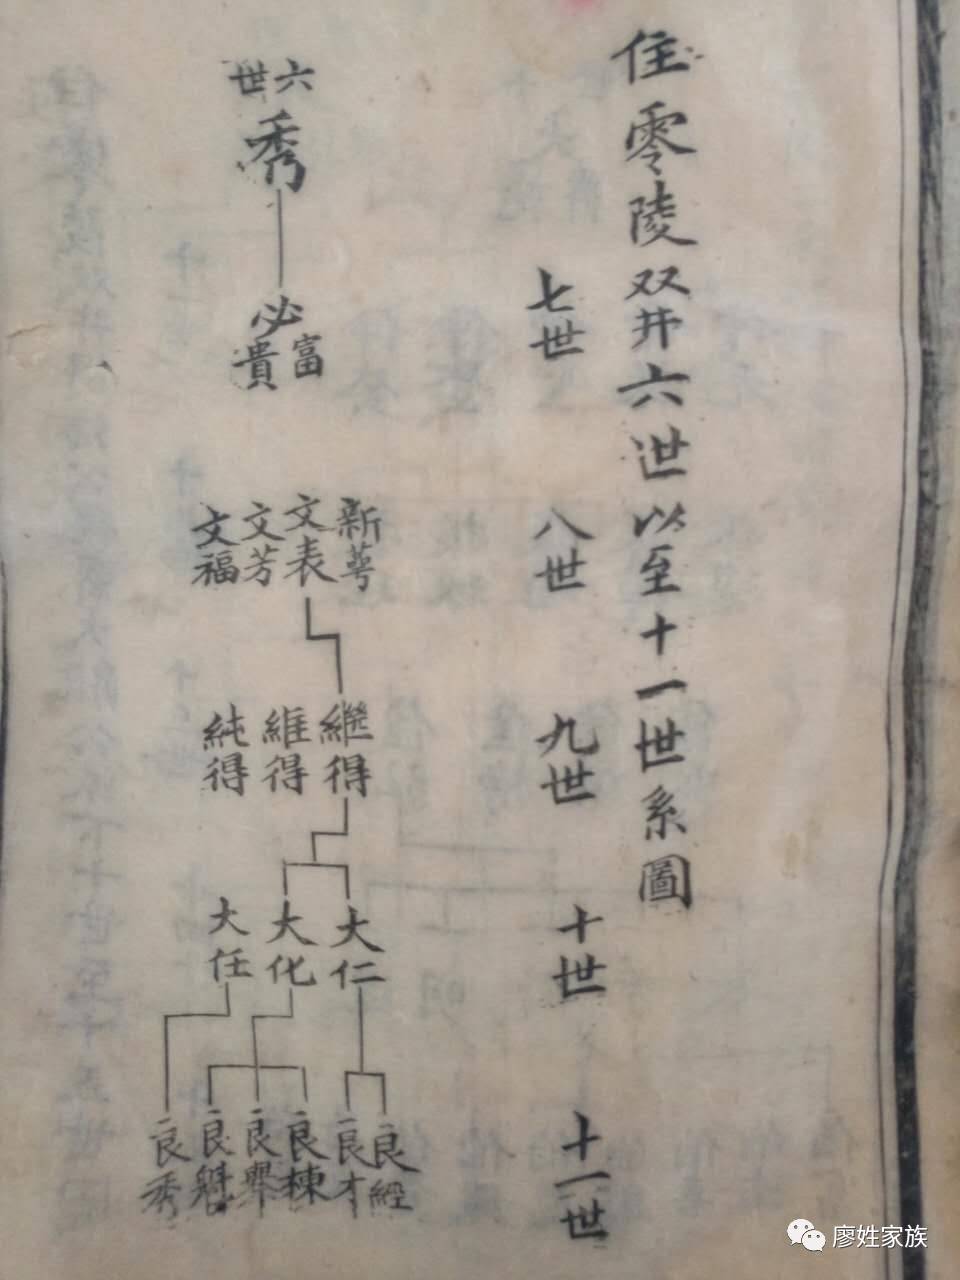 住零陵双井六世以至十一世系圖
七世
八世
九世
十世
十一世
六世
秀
必富
貴
新萼
文表
文芳
文福
繼得
維得
純得
大仁
大化
大任
良經
良才
良棟
良舉
良魁
良秀
廖姓家族